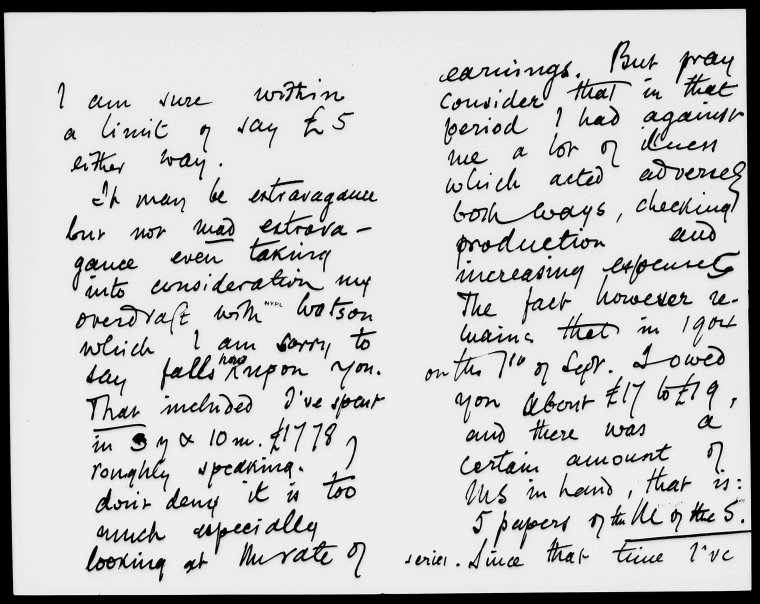 I am sure within
a limit of say £5
either way.
It may be extravagance
but not mad extrava-
gance even taking
into consideration my
overdraft with Watson
which I am sorry to
say falls now upon you.
That included I've spent
in 3 y & 10 m. £1778
roughly speaking. I
don't deny it is too
much especially
looking at the rate of
NYPL
earnings. But pray
consider that in that
period I had against
me a lot of illness
which acted adversely
both ways, checking
production and
increasing expenses
The fact however re-
mains that in 1904
on the 7th of Sept. I owed
you about £17 to £19,
and there was a
certain amount of
MS in hand, that is:
5 papers of the M of the S.
series. Since that time I've